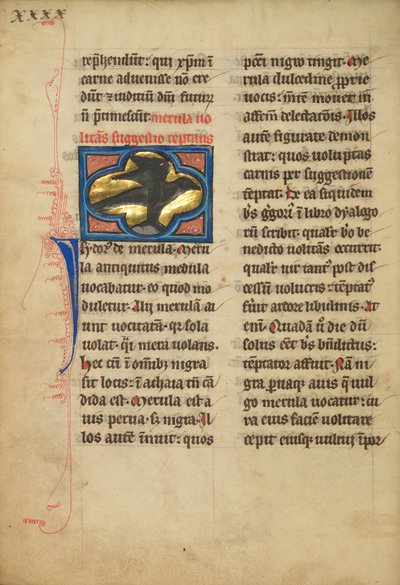 xxxx
rep̄hendūt: qui xp̄m ī
carne aduenisse nō cre
dūt ⁊ iudiciū dn̄i futurū
n̄ ꝑtimescūt. merula uo
litās suggestio temptatiōis
ysidorꝰ de merula. Meru
la antiquitus medula
uocabatur. eo quod mo
duletur. Alij merulā ai
unt uocitatā. qꝛ sola
uolat. qͣi mera uolans.
Hec cū ī om̄ibꝫ nigra
sit locis: ī achaia tn̄ cā
dida est. Merula est a
uis ꝑua. sꝫ nigra. Il
los autē īnuit: quos
pcc̄i nigro tingit. Me
rula dulcedine ꝓprie
uocis: mētē mouet in
affc̄m delectatōis. Illos
autē figurate demon
strat: quos uoluptas
carnis per suggestionē
tēptat. De ea siquidem
bs̄ g̊gori ī libro dyalogo
rū scribit. qualꝛ bō be
nedicto uolitās occurrit.
qualꝛ uir sanc post dis
cessū uolucris: tēptatꝰ
fūit ardore libidinis. At
enī. Quadā u̓ die dū
solus eēt bs̄ bn̄dictus:
temptator affuit. Nā ni
gra ꝑuaqꝫ auis q̄ uul
go merula uocatur: ci
ca eius faciē uolitare
cepit eiusqꝫ uultui īpor